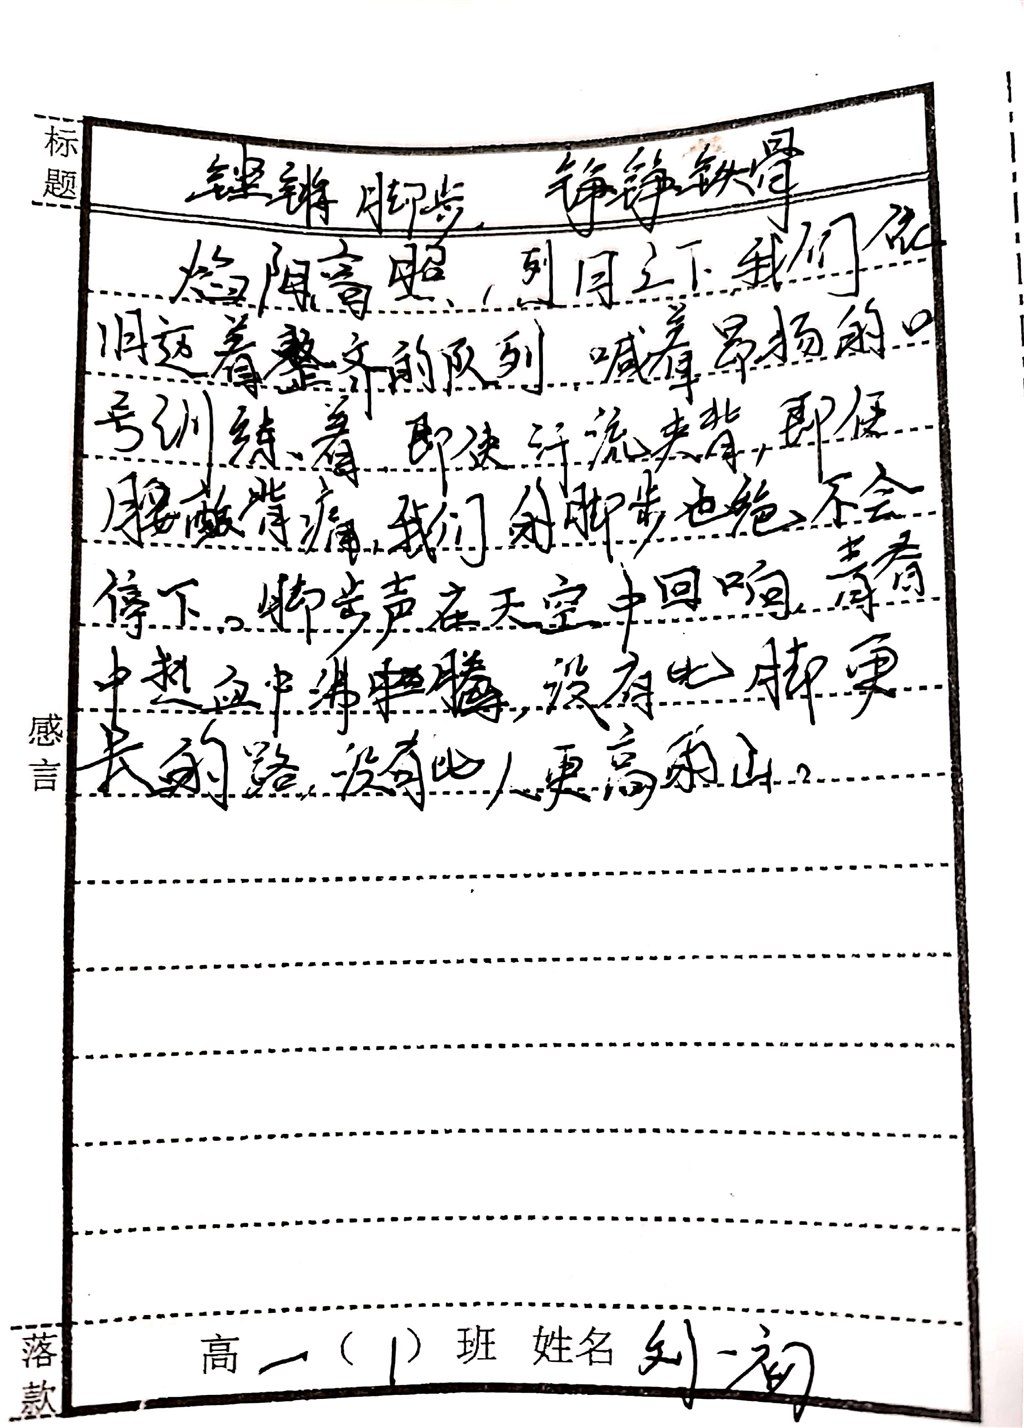 标题
铿锵脚步，铮铮铁骨
焰阳高照，烈日之下，我们依
旧迈着整齐的队列，喊着昂扬的口
号训练着，即使汗流夹背，即便
腰酸背痛，我们的脚步也绝不会
停下。脚步声在天空中回响，青春
中热血中沸腾，没有比脚更
长的路，没有比人更高的山。
感言
落款
高一（1）班 姓名 刘一